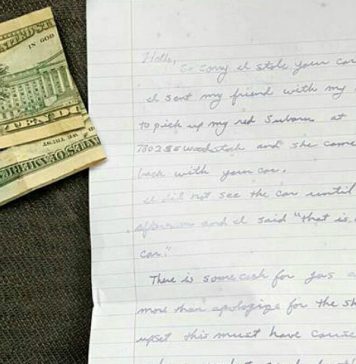 IN GOD
TEN D
Hello,
So sorry I stole your car
I sent my friend with my
to pick up my red Subaru at
7802 SE Woodstock and she came
back with your car.
I did not see the car until
afternoon and I said "that is
car."
There is some cash for gas a
more than apologize for the sh
upset this must have cause